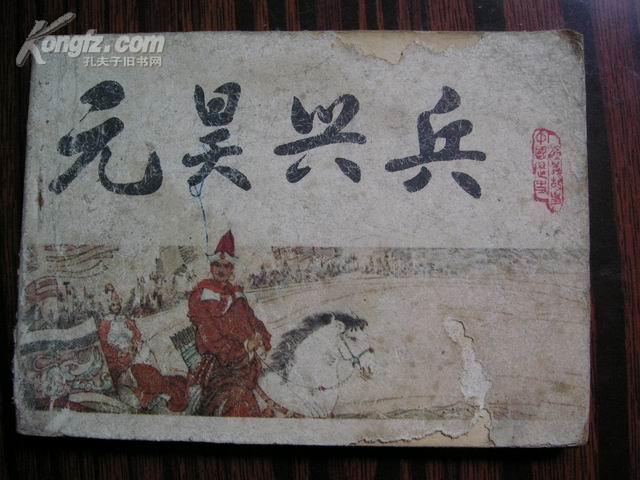 Kongfz.com
孔夫子旧书网
元昊兴兵
中国历史
演义故事